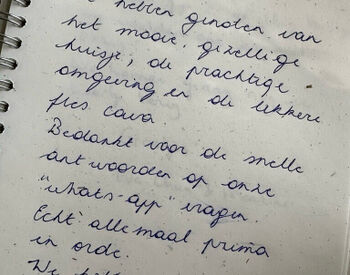 hebben genoten van
het mooie, gezellige
huisje, de prachtige
omgeving en de lekkere
fles cava
Bedankt voor de snelle
antwoorden op onze
"whats-app" vragen.
Echt allemaal prima
in orde.
We